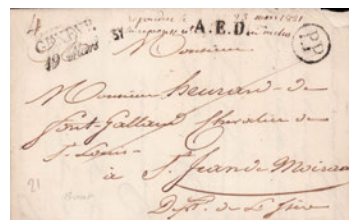 GENEVE
19 Mars
A.E.D.
23 mars 1831
P.P.
Monsieur
Monsieur Beurard de
font-Galland Chevalier de
St. Louis
à St. Jean de Moirans
Dept. de L'Isère
21